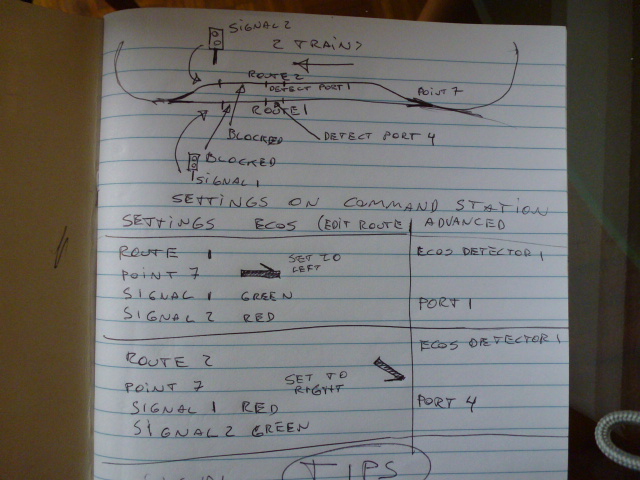 SIGNAL 2
2 TRAINS
ROUTE 2
DETECT PORT 1
POINT 7
ROUTE 1
BLOCKED
DETECT PORT 4
BLOCKED
SIGNAL 1
SETTINGS ON COMMAND STATION
SETTINGS ECOS (EDIT ROUTE) ADVANCED
ROUTE 1
SET TO
LEFT
ECOS DETECTOR 1
POINT 7
SIGNAL 1 GREEN
PORT 1
SIGNAL 2 RED
ECOS DETECTOR 1
ROUTE 2
POINT 7
SET TO
RIGHT
SIGNAL 1 RED
PORT 4
SIGNAL 2 GREEN
TIPS